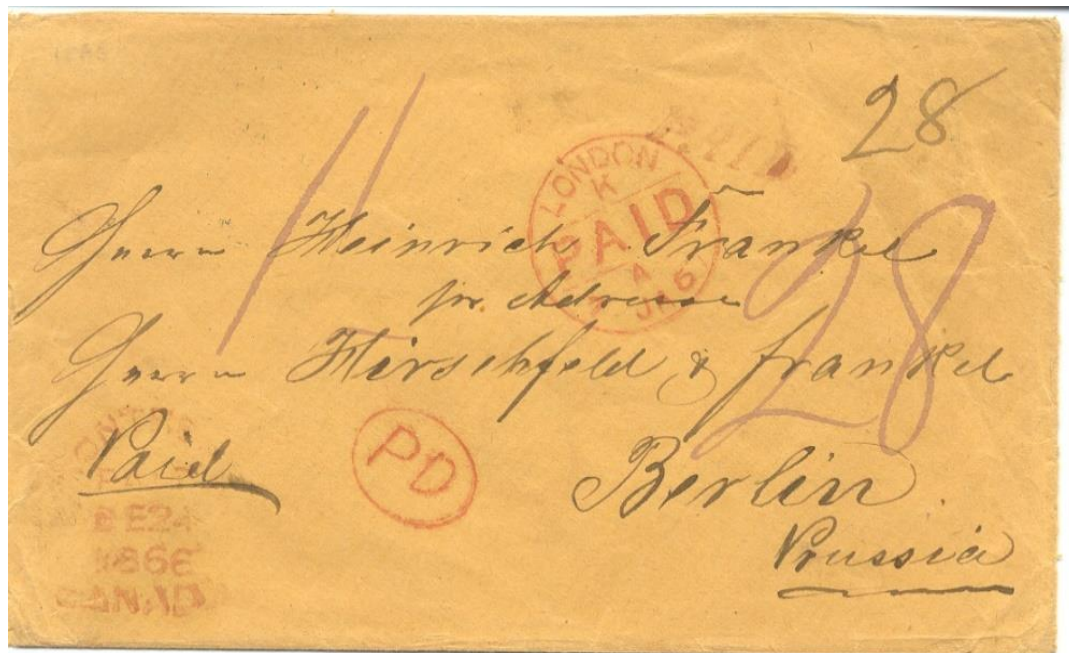 28
11
LONDON
K
PAID
JA 6
28
Herrn Heinrich Frankel
pr Adresse
Herrn Hirschfeld & Frankel
Paid
PD
Berlin
Prussia
DE24
1866
CANAD